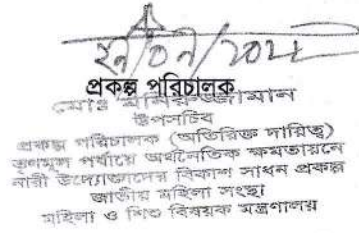 প্রকল্প পরিচালক
মোঃ মনিরুজ্জামান
উপসচিব
প্রকল্প পরিচালক (অতিরিক্ত দায়িত্ব)
তৃণমূল পর্যায়ে অর্থনৈতিক ক্ষমতায়নে
নারী উদ্যোক্তাদের বিকাশ সাধন প্রকল্প
জাতীয় মহিলা সংস্থা
মহিলা ও শিশু বিষয়ক মন্ত্রণালয়